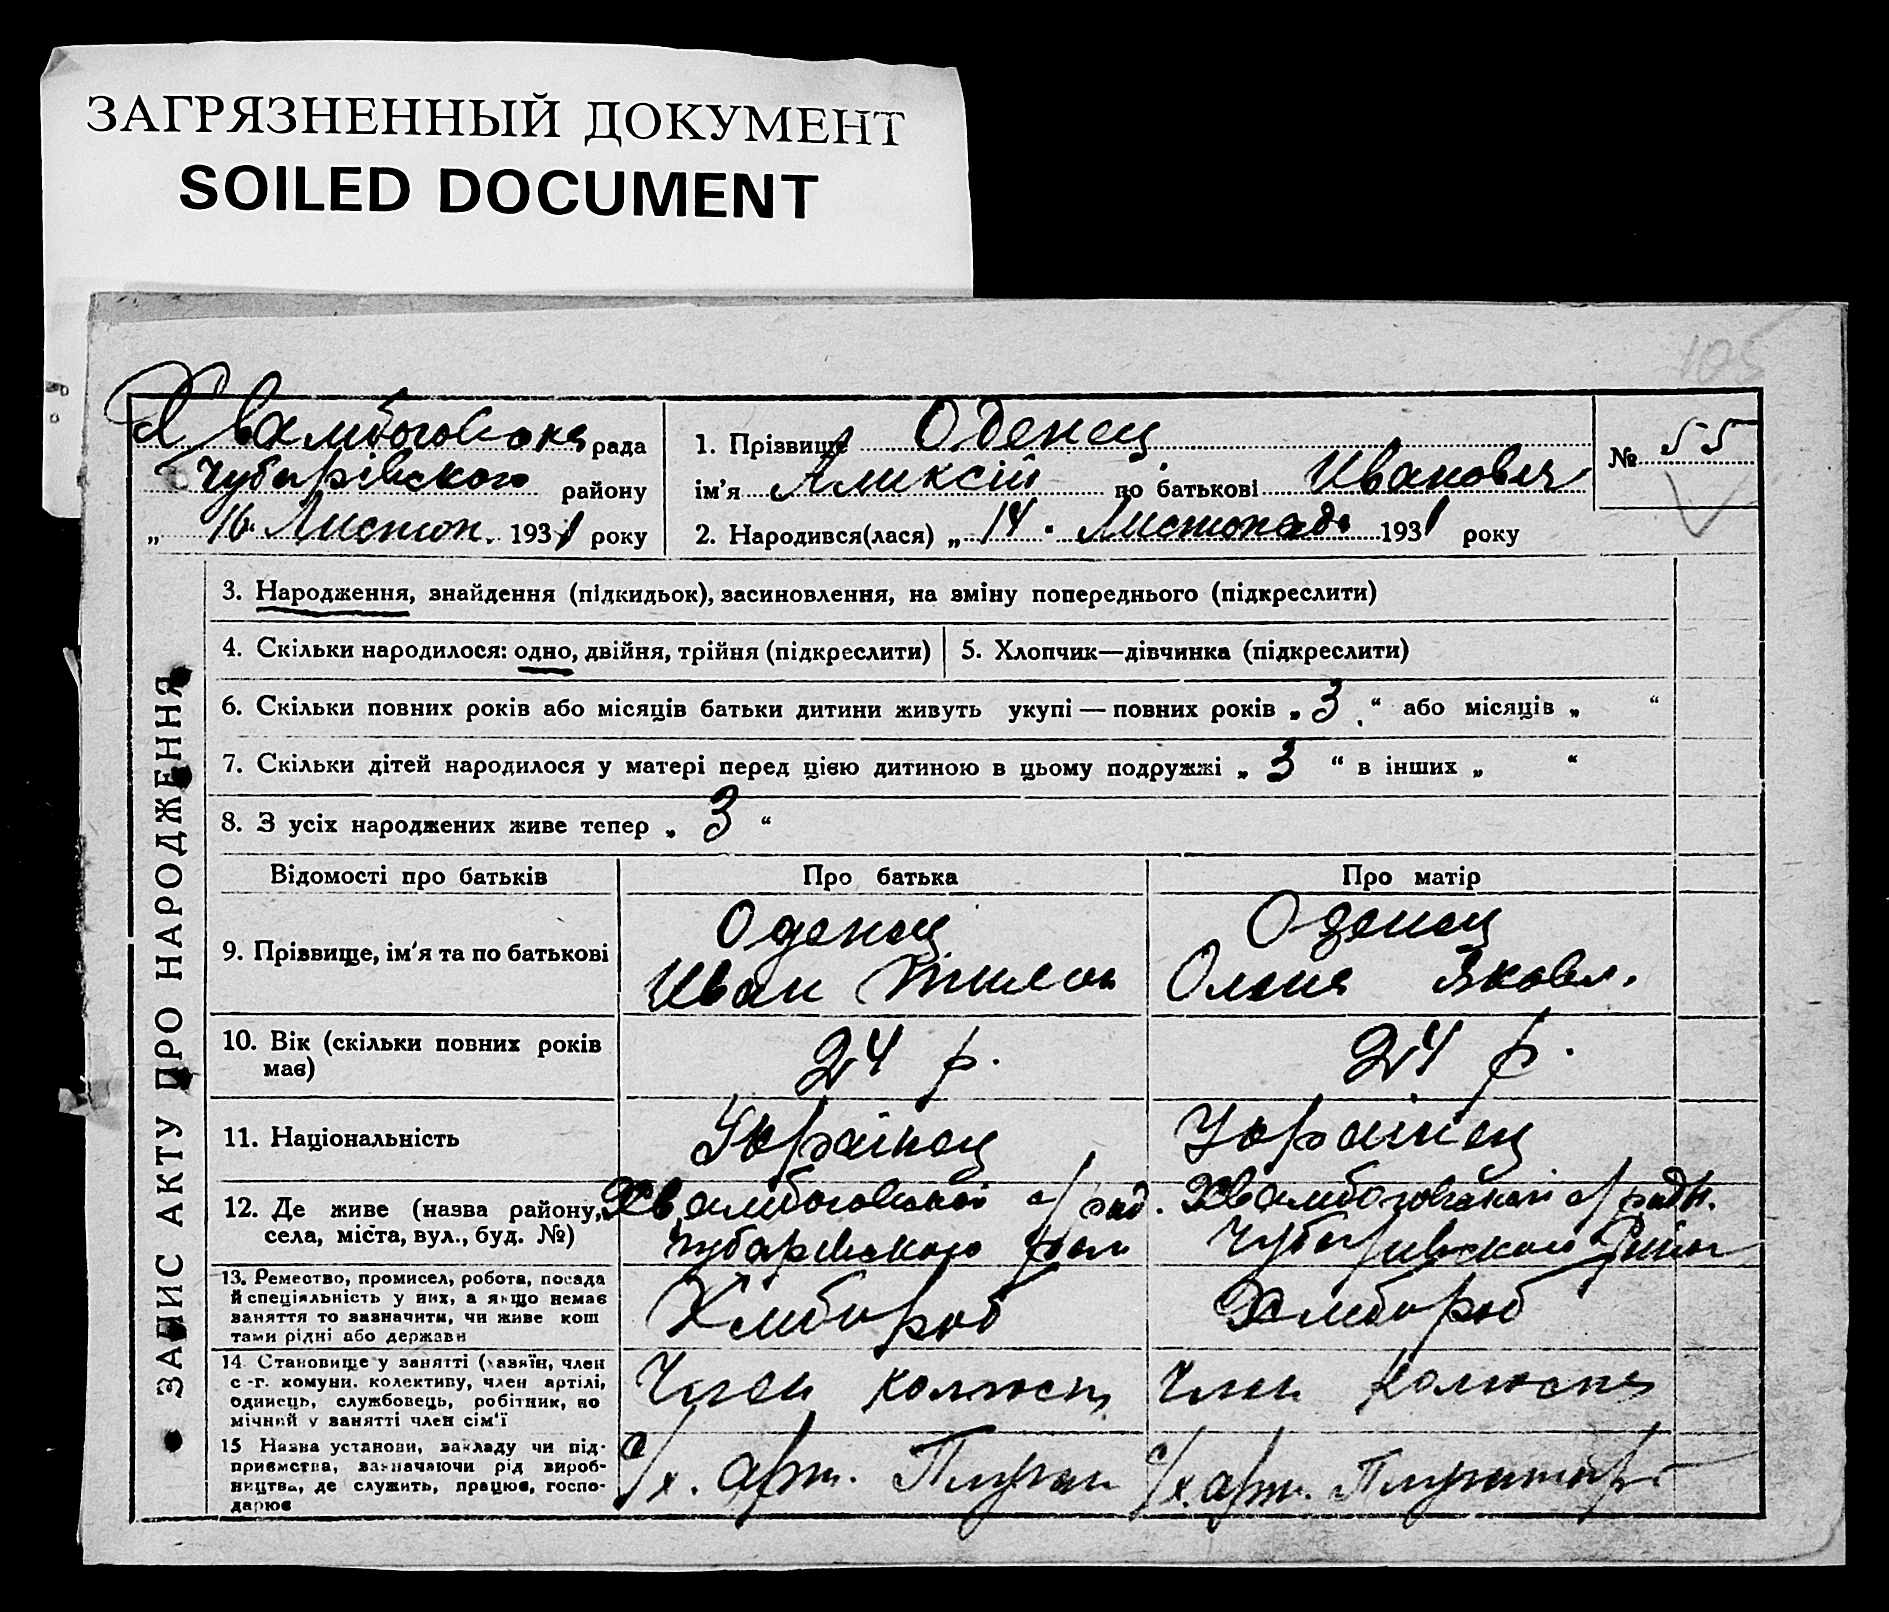 ЗАГРЯЗНЕННЫЙ ДОКУМЕНТ
SOILED DOCUMENT
105
рада
Чубарівского району
„ 16 “ Листоп. 1931 року
1. Прізвище Оденец
ім'я Аликсій по батькові Иванович
2. Народився(лася) „ 14 “ Листопада 1931 року
№ 55
ЗАПИС АКТУ ПРО НАРОДЖЕННЯ
3. Народження, знайдення (підкидьок), засиновлення, на зміну попереднього (підкреслити)
4. Скільки народилося: одно, двійня, трійня (підкреслити)
5. Хлопчик—дівчинка (підкреслити)
6. Скільки повних років або місяців батьки дитини живуть укупі — повних років „ 3 “ або місяців „ “
7. Скільки дітей народилося у матері перед цією дитиною в цьому подружжі „ 3 “ в інших „ “
8. З усіх народжених живе тепер „ 3 “
Відомості про батьків
Про батька
Про матір
9. Прізвище, ім'я та по батькові
Оденец
Иван
Оденец
Яковл.
10. Вік (скільки повних років
має)
24 р.
24 р.
11. Національність
Українец
Українец
12. Де живе (назва району,
села, міста, вул., буд. №)
с/рад.
Чубарівского
с/ради.
13. Ремество, промисел, робота, посада
й спеціяльність у них, а якщо немає
заняття то зазначити, чи живе кош
тами рідні або держави
Хлибороб
Хлибороб
14 Становище у занятті (хазяїн, член
с.-г. комуни, колективу, член артілі,
одинець, службовець, робітник, по
мічний у занятті член сім'ї
Член
Член
15 Назва установи, закладу чи під-
приємства, зазначаючи рід вироб-
ництва, де служить, працює, госпо-
дарює
с/х. арт.
с/х. арт.